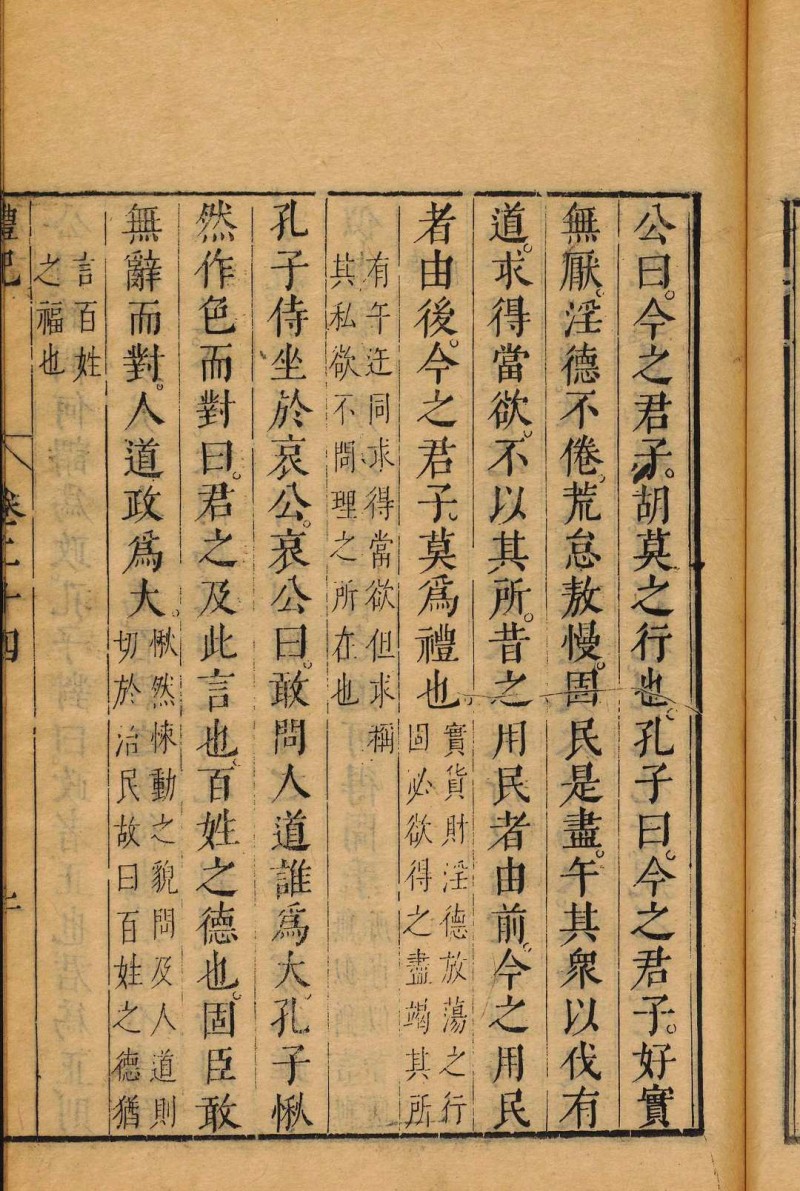 公曰。今之君子。胡莫之行也。孔子曰。今之君子。好實
無厭。淫德不倦。荒怠敖慢。固民是盡。午其衆以伐有
道。求得當欲。不以其所。昔之用民者由前。今之用民
者由後。今之君子。莫爲禮也。
實貨財淫德放蕩之行
固必欲得之盡竭其所
有午迕同求得當欲但求稱
其私欲不問理之所在也
孔子侍坐於哀公。哀公曰。敢問人道誰爲大。孔子愀
然作色而對曰。君之及此言也。百姓之德也。固臣敢
無辭而對。人道政爲大。
愀然悚動之貌問及人道則
切於治民故曰百姓之德猶
言百姓
之福也
禮記 卷二十四